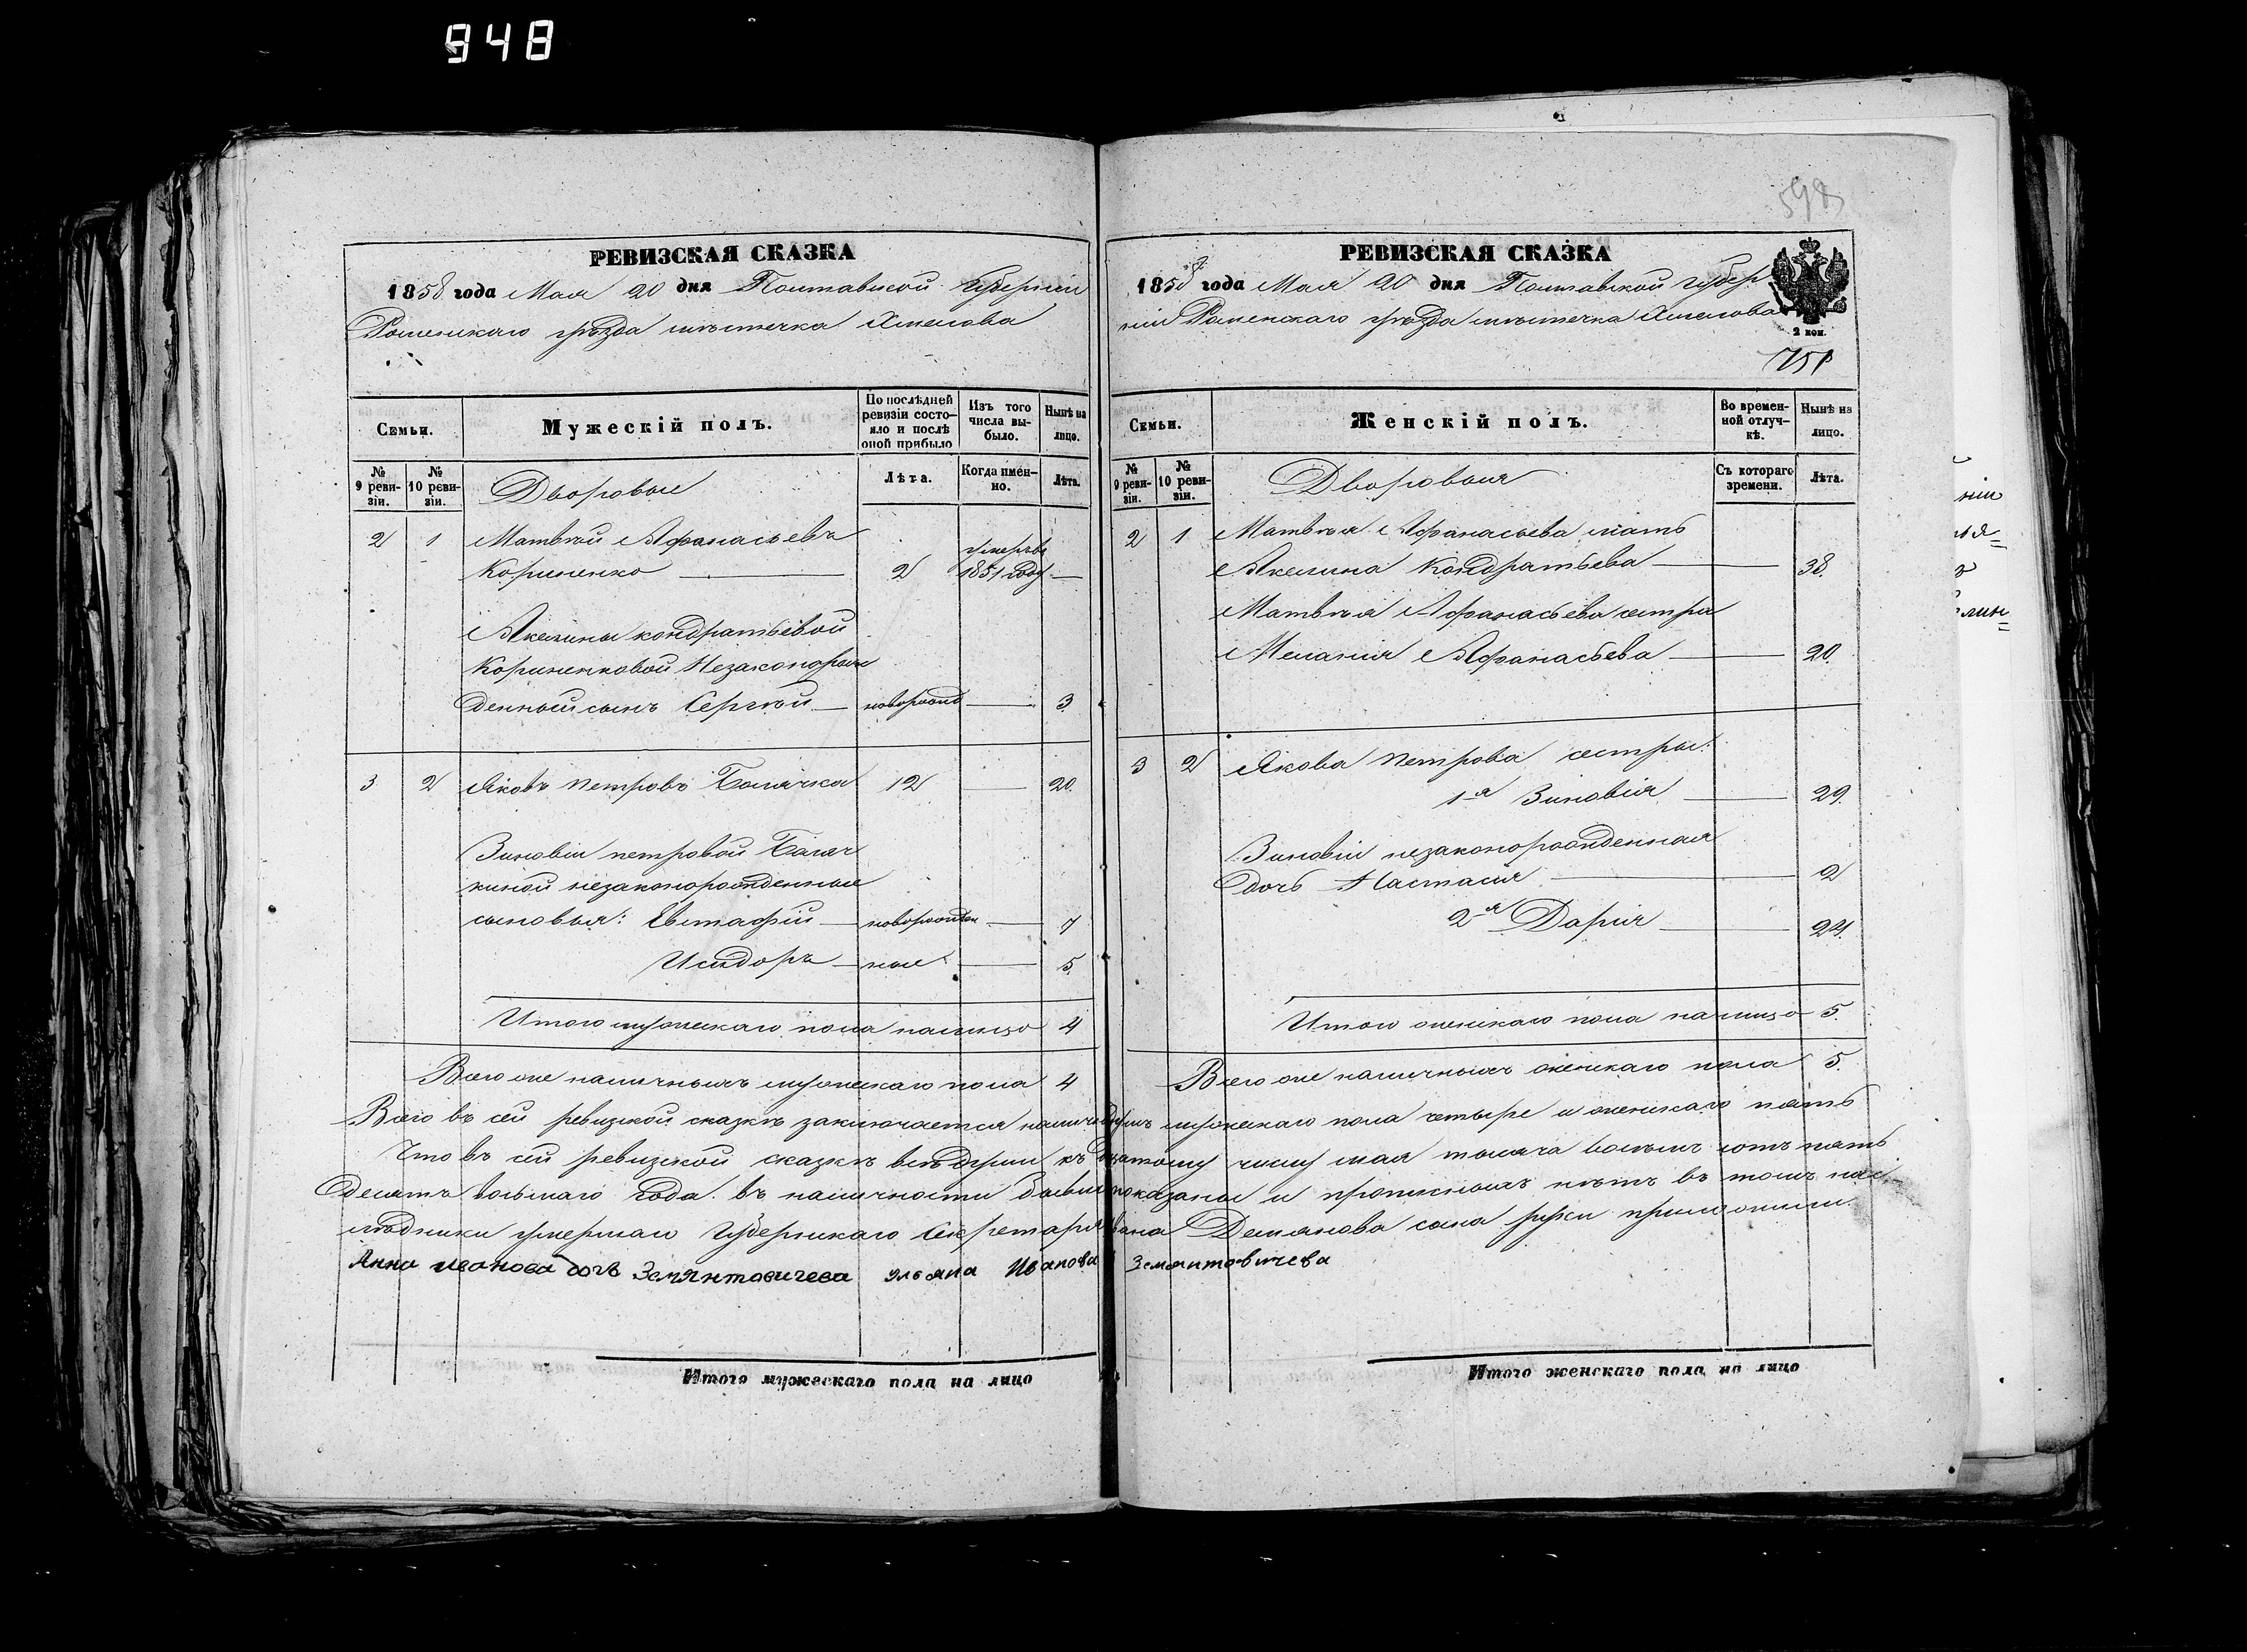 948
598
РЕВИЗСКАЯ СКАЗКА
1858 года Мая 20 дня Полтавской Губерніи
Роменскаго уѣзда мѣстечка Хмелова
По послѣдней ревизіи состо-
яло и послѣ
оной прибыло
Изъ того
числа вы-
было.
Нынѣ на
лицо.
Семьи.
Мужескій полъ.
№
9 реви-
зіи.
№
10 реви-
зіи.
Дворовые
Лѣта.
Когда имен-
но.
Лѣта.
2 1 Матвѣй Афанасьевъ
умерѣ
Кориненко 2 1851 году
Акелины Кондратьевой
Кориненковой Незаконорож
денный сынъ Сергѣй новорожд 3
3 2 Яковъ Петровъ Болячка 12 20.
Зиновіи Петровой Баляч
киной незаконорожденные
сыновья: Евстафій новорожден 7
Исидоръ ные 5.
Итого мужескаго пола налицо 4
Всего же наличныхъ мужескаго пола 4
РЕВИЗСКАЯ СКАЗКА
1858 года Мая 20 дня Полтавской Губер
ніи Роменскаго уѣзда мѣстечка Хмелова
2 коп.
751
Семьи.
Женскій полъ.
Во времен-
ной отлуч-
кѣ.
Нынѣ на
лицо.
№
9 реви-
зіи.
№
10 реви-
зіи.
Дворовыя
Съ котораго
времени.
Лѣта.
2 1 Матвѣя Афанасьева мать
Акелина Кондратьева 38.
Матвѣя Афанасьева сестра
Меланія Афанасьева 20.
3 2 Якова Петрова сестры:
1-я Зиновія 29.
Зиновіи незаконорожденная
дочь Настасія 2
2-я Дарія 24.
Итого женскаго пола налицо 5.
Всего же наличныхъ женскаго пола 5.
Всего въ сей ревизской сказкѣ заключается наличныхъ душъ мужескаго пола четыре и женскаго пять
Что въ сей ревизской сказкѣ всѣ души къ мая тысяча восемь сотъ пять
десятъ восьмаго года въ наличности бывшіе показаны и прописныхъ нѣтъ въ томъ нас
лѣдники умершаго Губернскаго Секретаря Ивана Демянова сына руки приложили.
Анна Иванова дочь Земянтовичева Ульяна Иванова Земянтовичева
Итого мужескаго пола на лицо
Итого женскаго пола на лицо